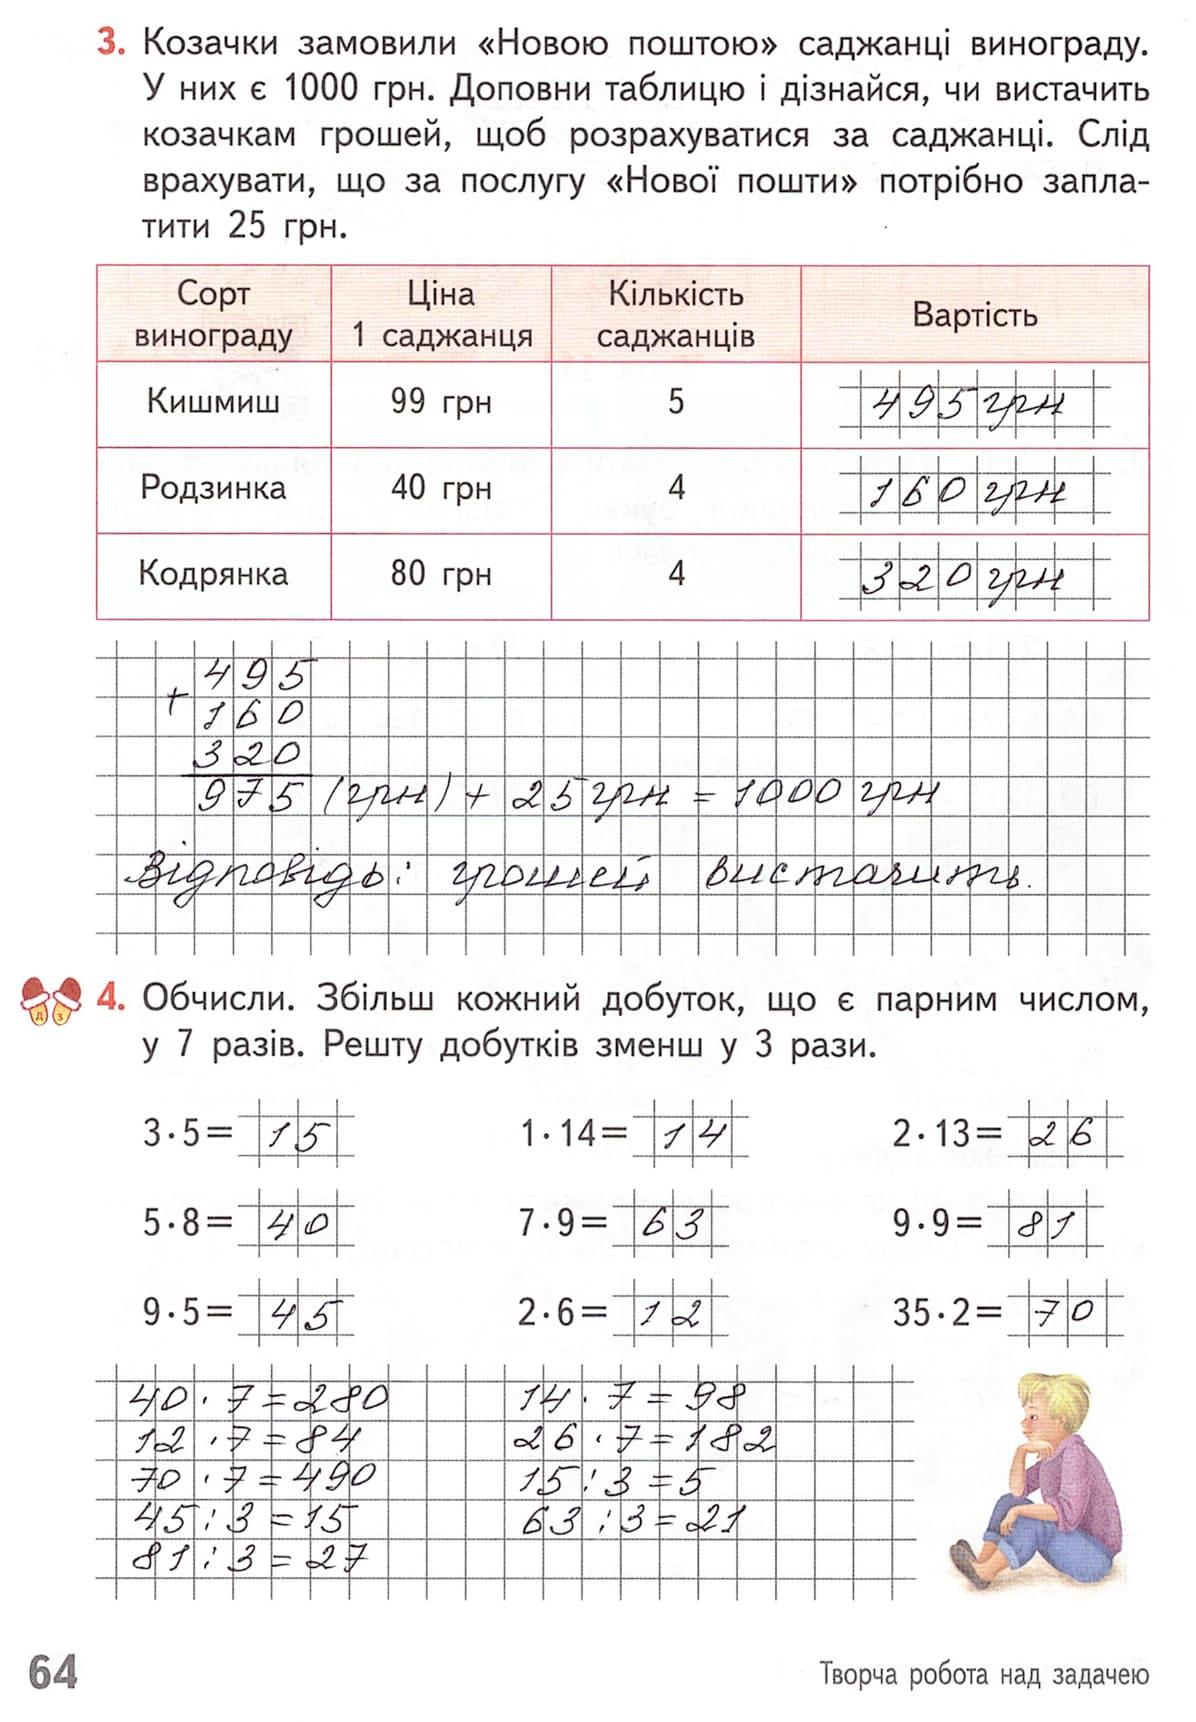 3. Козачки замовили «Новою поштою» саджанці винограду.
У них є 1000 грн. Доповни таблицю і дізнайся, чи вистачить
козачкам грошей, щоб розрахуватися за саджанці. Слід
врахувати, що за послугу «Нової пошти» потрібно запла-
тити 25 грн.
Сорт винограду Ціна 1 саджанця Кількість саджанців Вартість
Кишмиш 99 грн 5 495 грн
Родзинка 40 грн 4 160 грн
Кодрянка 80 грн 4 320 грн
495
+
160
320
975 (грн) + 25 грн = 1000 грн
Відповідь: грошей вистачить.
Д З
4. Обчисли. Збільш кожний добуток, що є парним числом,
у 7 разів. Решту добутків зменш у 3 рази.
3·5= 15 1·14= 14 2·13= 26
5·8= 40 7·9= 63 9·9= 81
9·5= 45 2·6= 12 35·2= 70
40 · 7 = 280 14 · 7 = 98
12 · 7 = 84 26 · 7 = 182
70 · 7 = 490 15 : 3 = 5
45 : 3 = 15 63 : 3 = 21
81 : 3 = 27
64 Творча робота над задачею